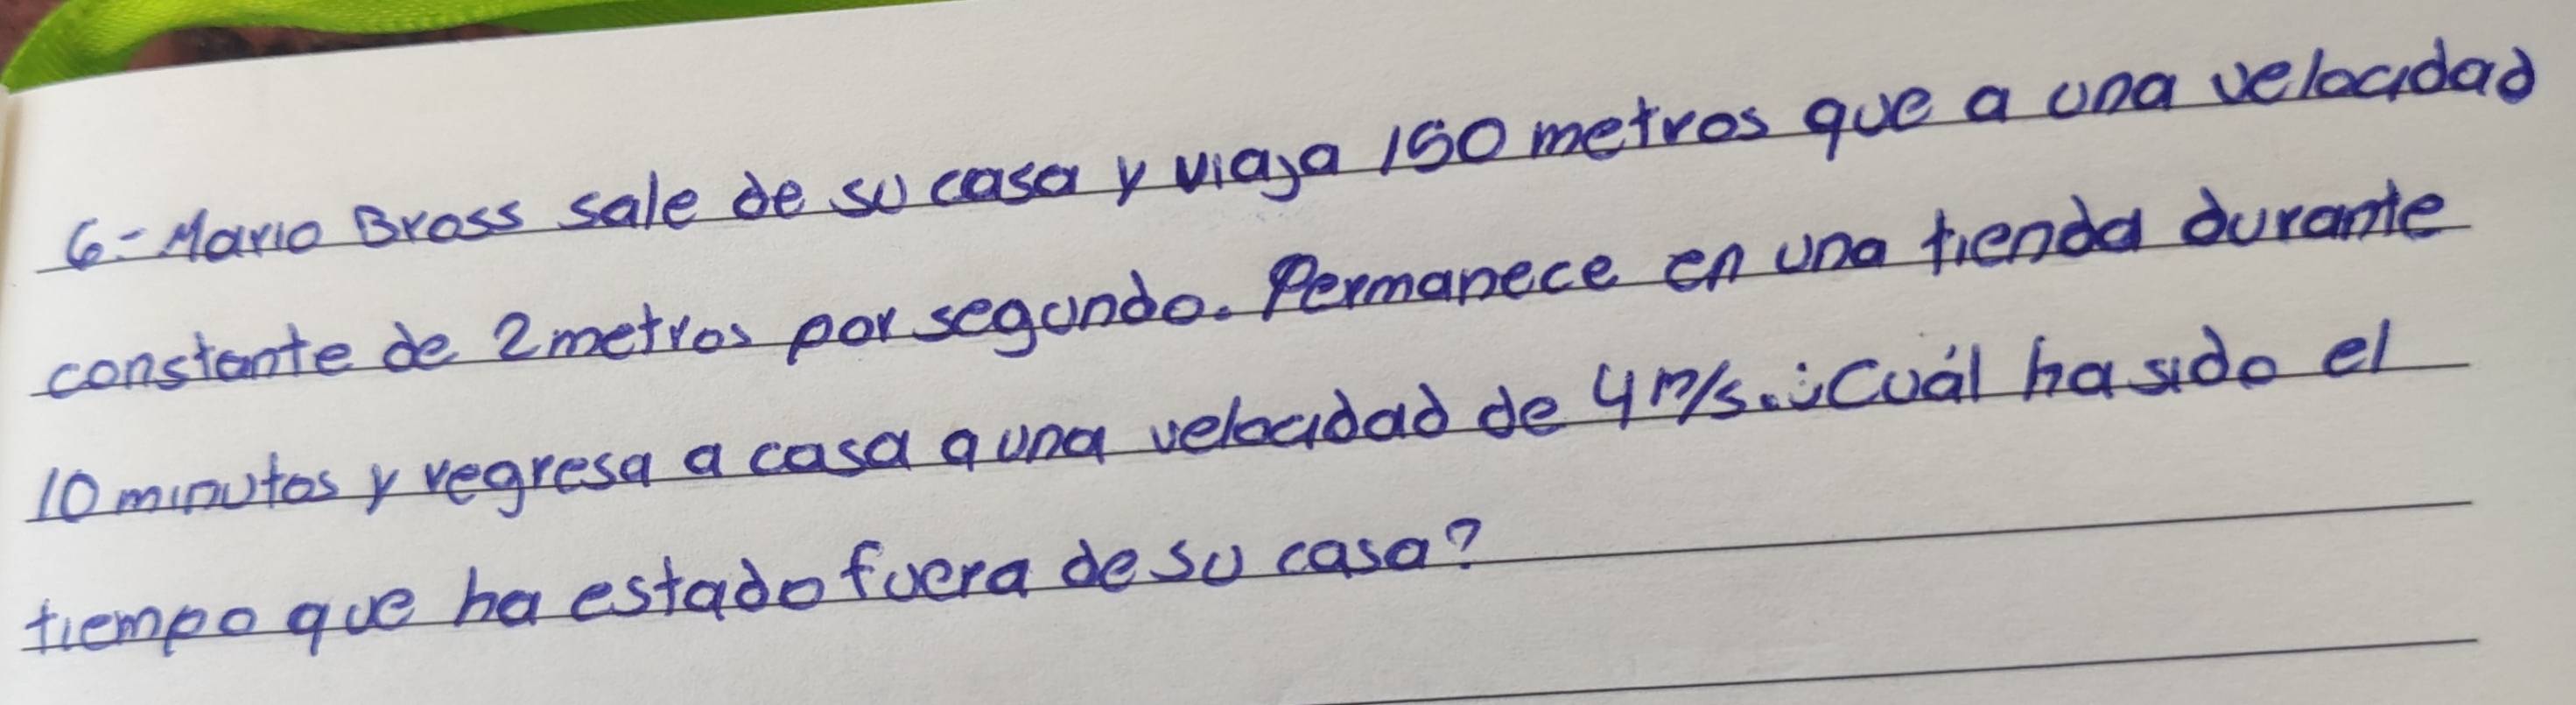 6.- Mario Bross sale de su casa y viaja 150 metros que a una velocidad
constante de 2 metros por segundo. Permanece en una tienda durante
10 minutos y regresa a casa a una velocidad de 4 m/s. ¿Cuál ha sido el
tiempo que ha estado fuera de su casa?